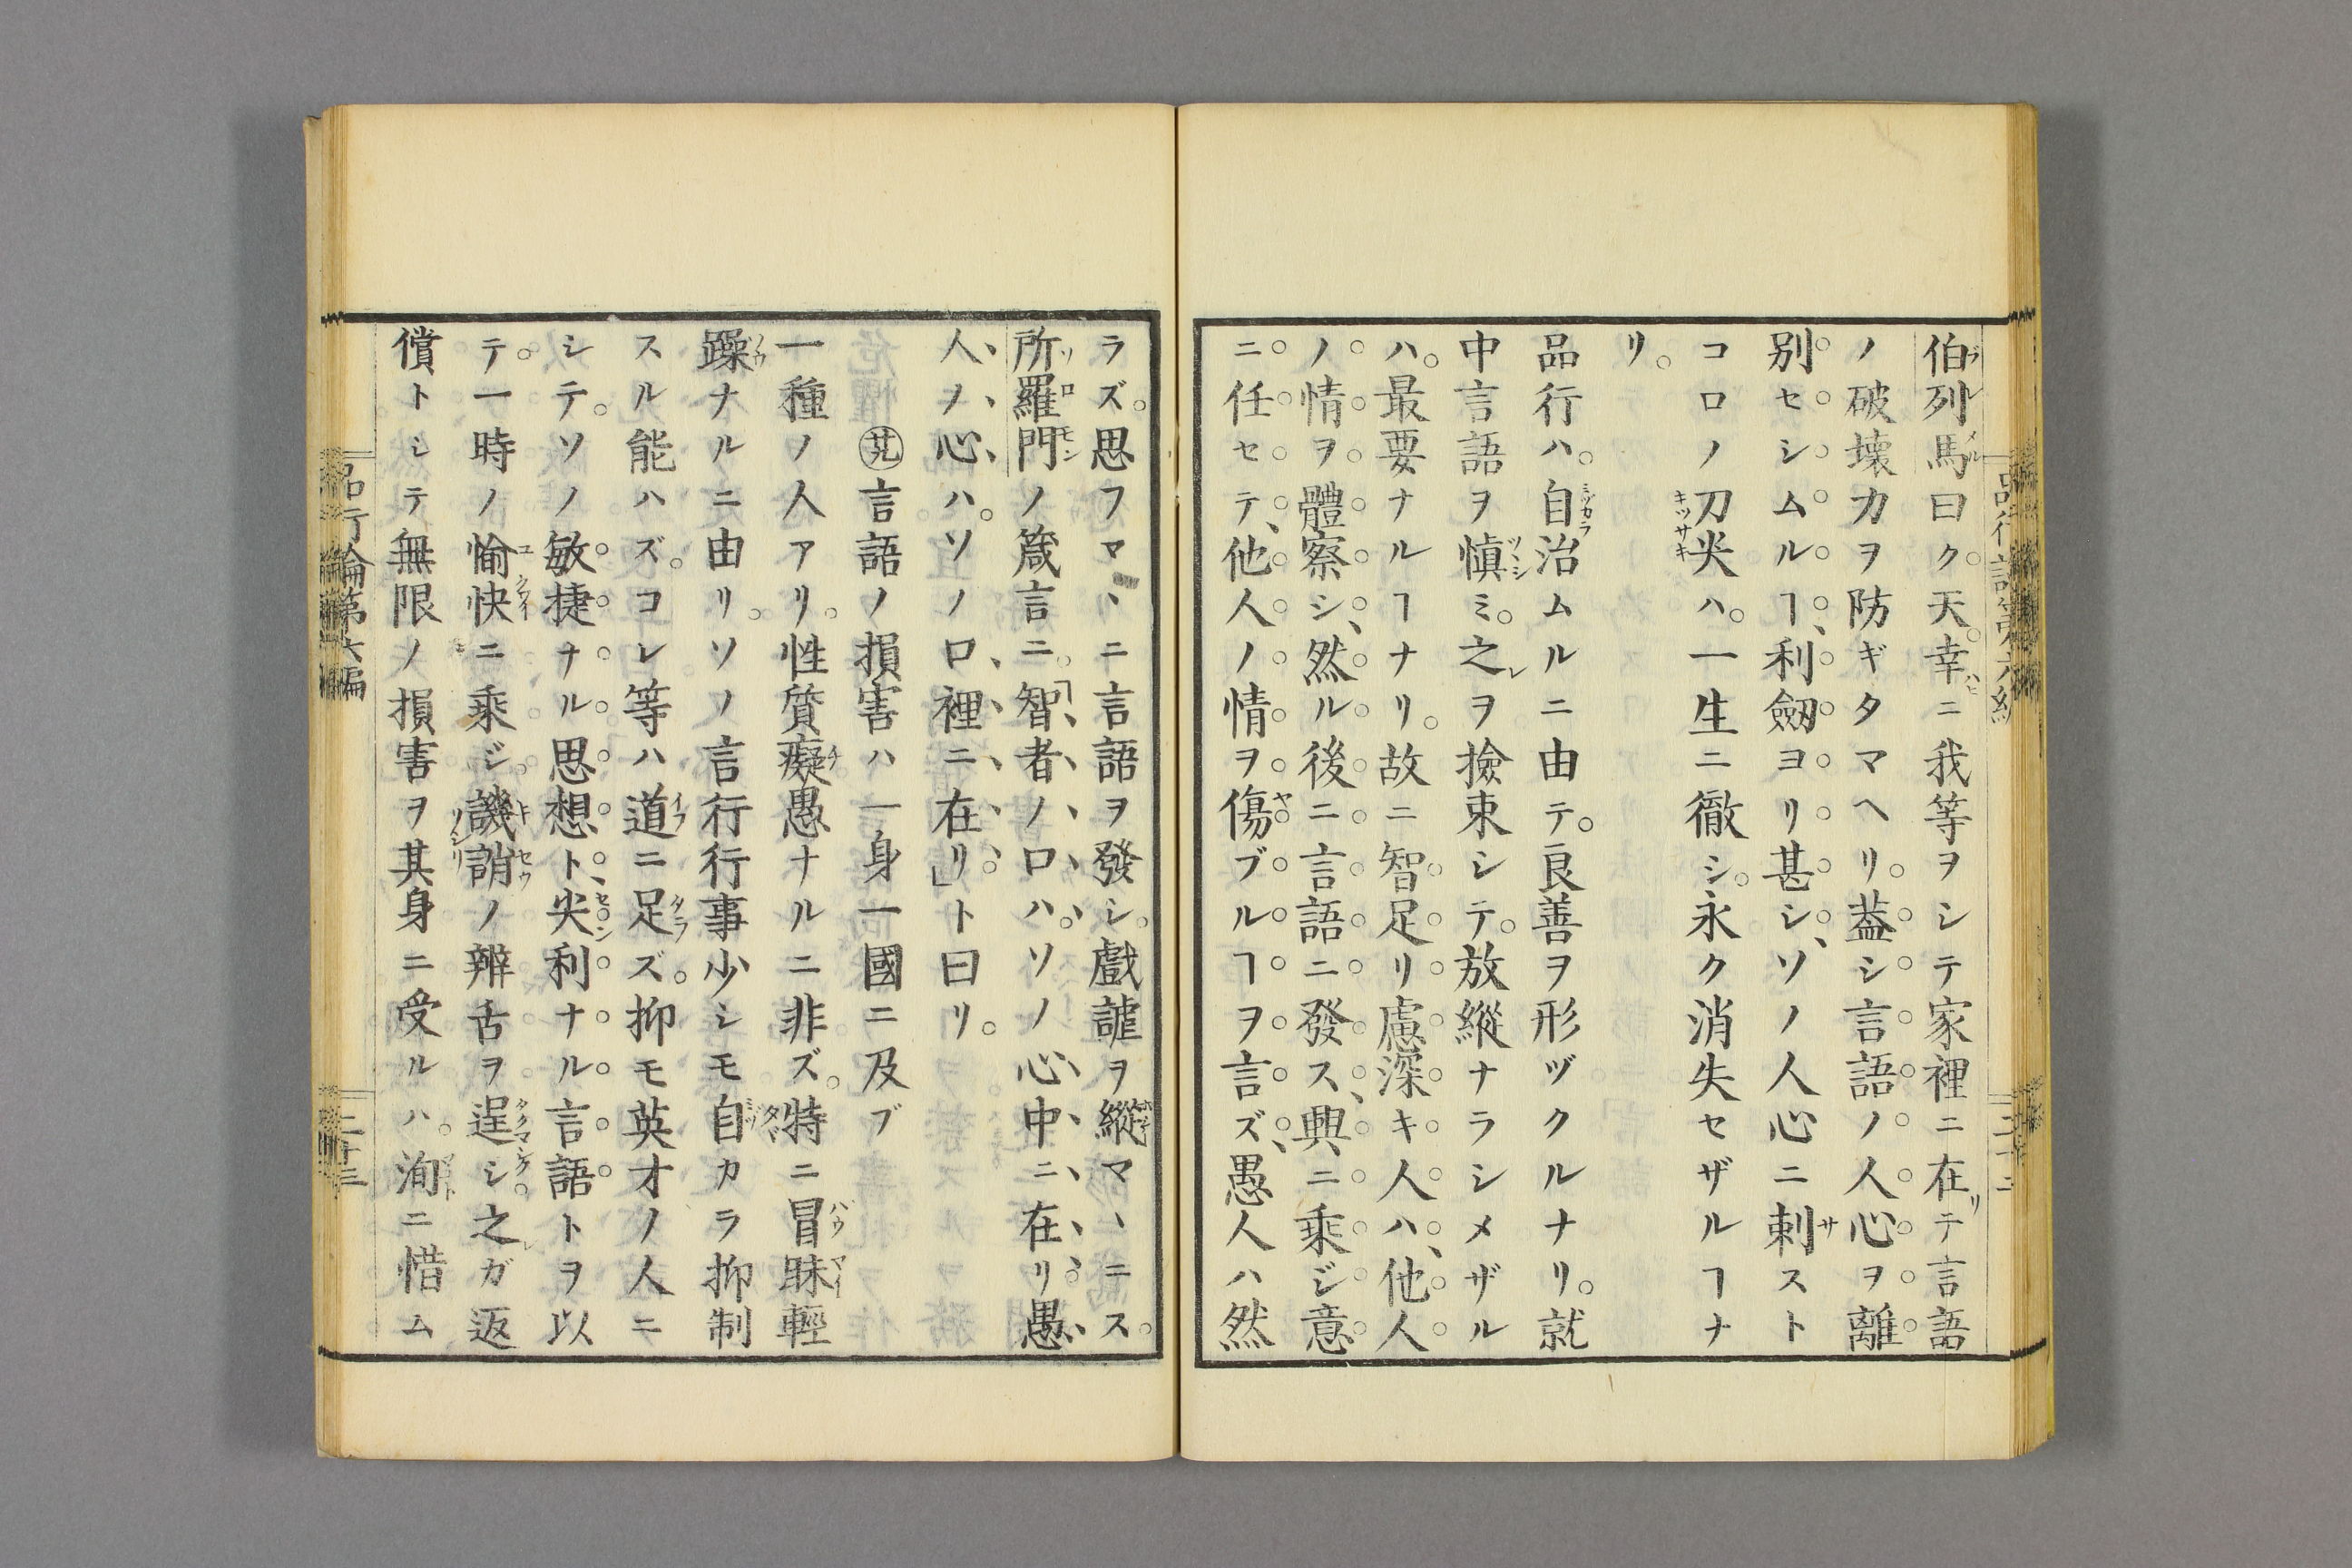 伯列馬曰ク。天幸ニ我等ヲシテ家裡ニ在テ言語
ノ破壊力ヲ防ギタマヘリ。葢シ言語ノ人心ヲ離
別セシムルヿ、利劔ヨリ甚シ、ソノ人心ニ刺スト
コロノ刀尖ハ。一生ニ徹シ。永ク消失セザルヿナ
リ。
品行ハ。自治ムルニ由テ。良善ヲ形ヅクルナリ。就
中言語ヲ愼ミ。之ヲ撿束シテ。放縱ナラシメザル
ハ。最要ナルヿナリ。故ニ智足リ慮深キ人ハ、他人
ノ情ヲ體察シ、然ル後ニ言語ニ發ス、興ニ乘ジ意
ニ任セテ、他人ノ情ヲ傷ブルヿヲ言ズ、愚人ハ然
ラズ。思フマヽニ言語ヲ發シ。戲謔ヲ縱マヽニス。
所羅門ノ箴言ニ。「智者ノ口ハ。ソノ心中ニ在リ。愚
人ヲ心ハ。ソノ口裡ニ在リ」ト曰リ。
㊩言語ノ損害ハ一身一國ニ及ブ
一種ノ人アリ。性質癡愚ナルニ非ズ。特ニ冒昧輕
躁ナルニ由リ。ソノ言行行事少シモ自カラ抑制
スル能ハズ。コレ等ハ道ニ足ズ。抑モ英才ノ人ニ
シテ。ソノ敏捷ナル思想ト、尖利ナル言語トヲ以
テ。一時ノ愉快ニ乘ジ。譏誚ノ辨舌ヲ逞シ。之ガ返
償トシテ無限ノ損害ヲ其身ニ受ルハ。洵ニ惜ム
品行論第六編
二十三